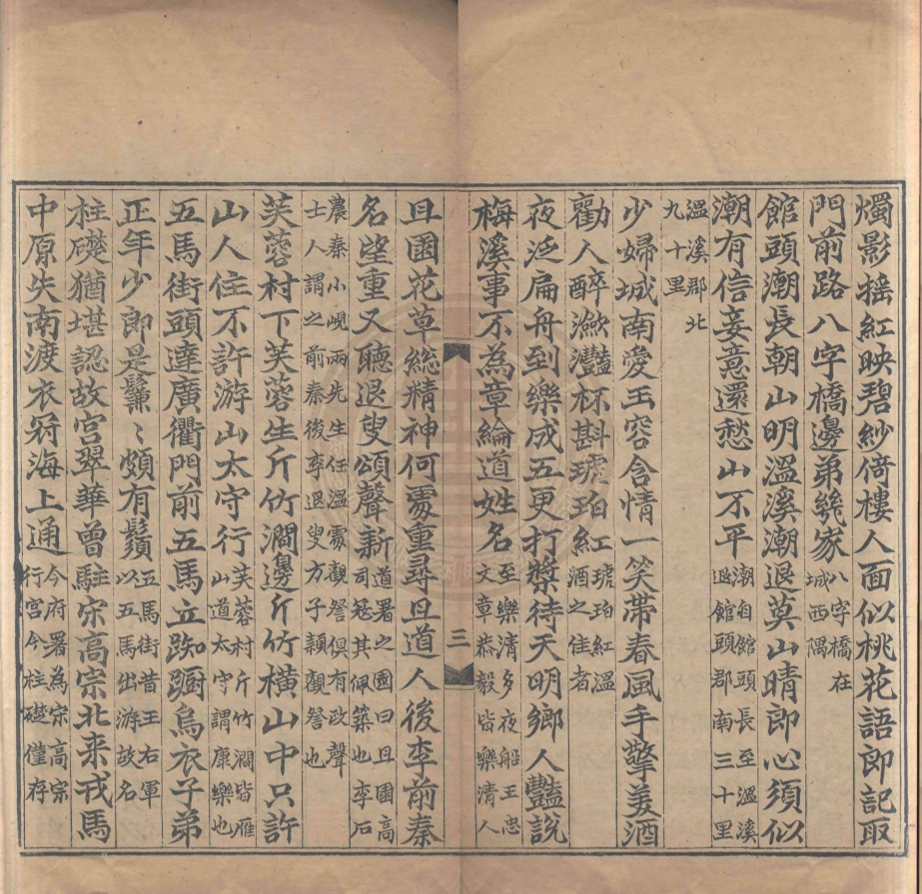 燭影搖紅映碧紗倚樓人面似桃花語郎記取
門前路八字橋邊弟幾家八字橋在城西隅
館頭潮長朝山明溫溪潮退莫山晴郎心須似
潮有信妾意還愁山不平潮自館頭長至溫溪退館頭郡南三十里
溫溪郡北九十里
少婦城南愛玉容含情一笑帶春風手擎美酒
勸人醉瀲灩杯斟琥珀紅琥珀紅溫酒之佳者
夜泛扁舟到樂成五更打槳待天明鄉人豔說
梅溪事不為章綸道姓名至樂清多夜船王忠文章恭毅皆樂清人
三
且園花草總精神何處重尋且道人後李前秦
名望重又聽退叟頌聲新道署之園曰且園高司寇其佩築也李石
農秦小峴兩先生任溫處觀詧俱有政聲士人謂之前秦後李退叟方子穎觀詧也
芙蓉村下芙蓉生斤竹澗邊斤竹橫山中只許
山人住不許游山太守行芙蓉村斤竹澗皆雁山道太守謂康樂也
五馬街頭達廣衢門前五馬立踟躕烏衣子弟
正年少郎是鬑〻頗有鬚五馬街昔王右軍以五馬出游故名
柱礎猶堪認故宮翠華曾駐宋高宗北來戎馬
中原失南渡衣冠海上通今府署為宋高宗行宮今柱礎僅存